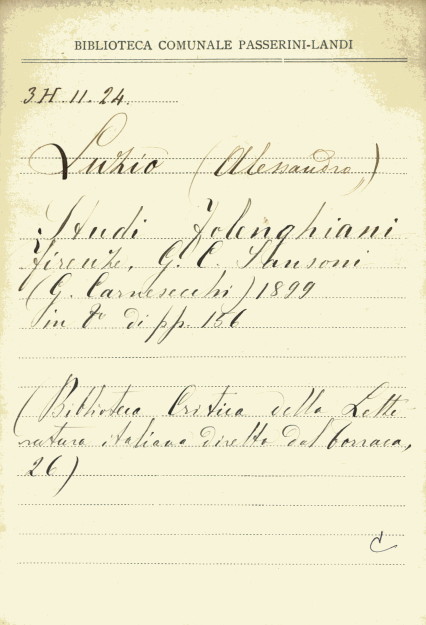 BIBLIOTECA COMUNALE PASSERINI-LANDI
3H.11.24.
Luzio (Alessandro)
Studi Folenghiani
Firenze, G. C. Sansoni
(G. Carnesecchi) 1899
in 8° di pp. 156
(Biblioteca Critica della Lette-
ratura italiana diretta dal Torraca,
26)
C